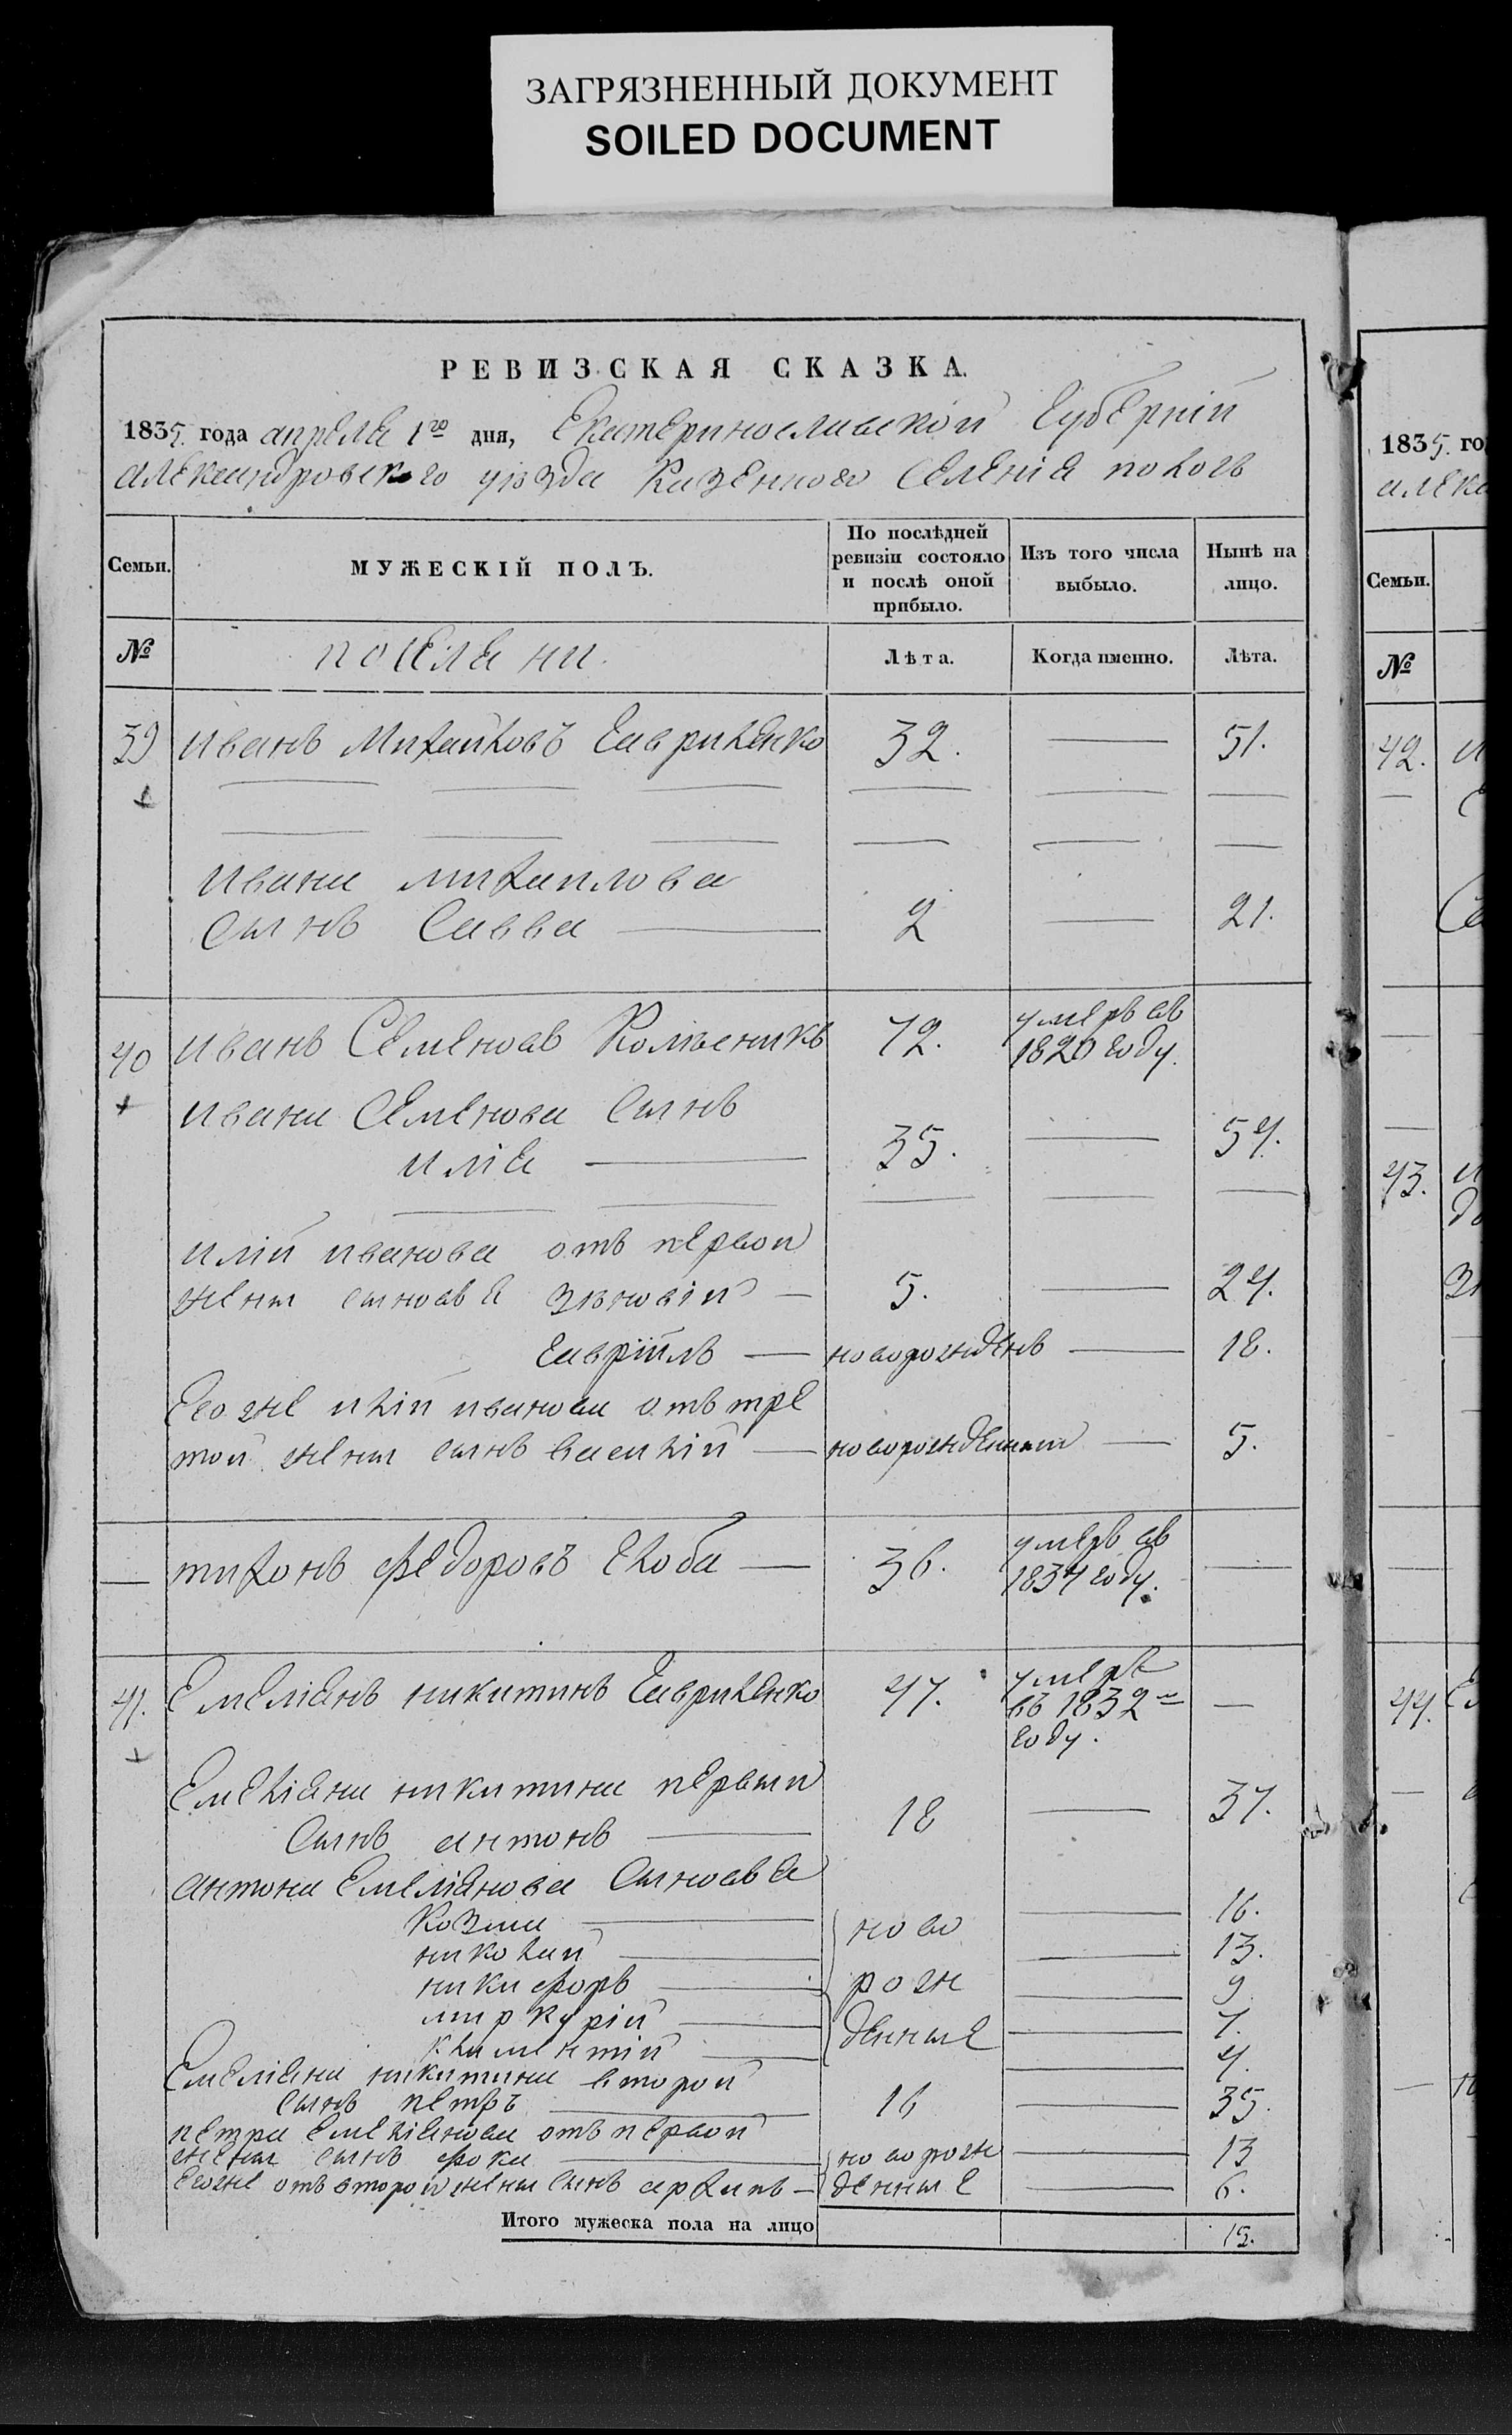 ЗАГРЯЗНЕННЫЙ ДОКУМЕНТ
SOILED DOCUMENT
РЕВИЗСКАЯ СКАЗКА.
1835. года апреля 1го дня, Екатеринославской Губерний
александровского уѣзда Казенного Селенiя пологъ
Семьи.
МУЖЕСКІЙ ПОЛЪ.
По послѣдней ревизіи состояло и послѣ оной прибыло.
Изъ того числа выбыло.
Нынѣ на лицо.
№
поселяни.
Лѣта.
Когда именно.
Лѣта.
39 иванъ Михайловъ Гавриленко 32. — 51.
ивана михаилова
Сынъ Савва — 2 — 21.
40 иванъ Семеновъ 72. умеръ въ
1820 году.
ивана Семенова Сынъ
илiя — 35. — 54.
илiи иванова отъ первой
жены сыновья зѣновiй — 5. — 24.
гаврiилъ — новорожденъ — 18.
Его же илiи иванова отъ тре
той жены сынъ василiй — новорожденный — 5.
— тихонъ федоровъ — 36. умеръ въ
1834 году. —
41. Емелiянъ никитинъ Гавриленко 47. умеръ
въ 1832м —
году.
Емелiяна никитина первый
Сынъ антонъ — 18 — 37.
антона Емелiянова Сыновья
Козма — ново — 16.
николай — — 13.
никифоръ — рож — 9
миркурiй — — 7.
климентiй — денные — 4.
Емелiяна никитина второй
сынъ петръ — 16 — 35.
петра Емелiянова отъ первой
жены сынъ фока — новорож — 13
Егоже отъ второй жены Сынъ архипъ — денные — 6.
Итого мужеска пола на лицо 15.
1835. го
алекс
Семьи.
№
42.
43.
44.